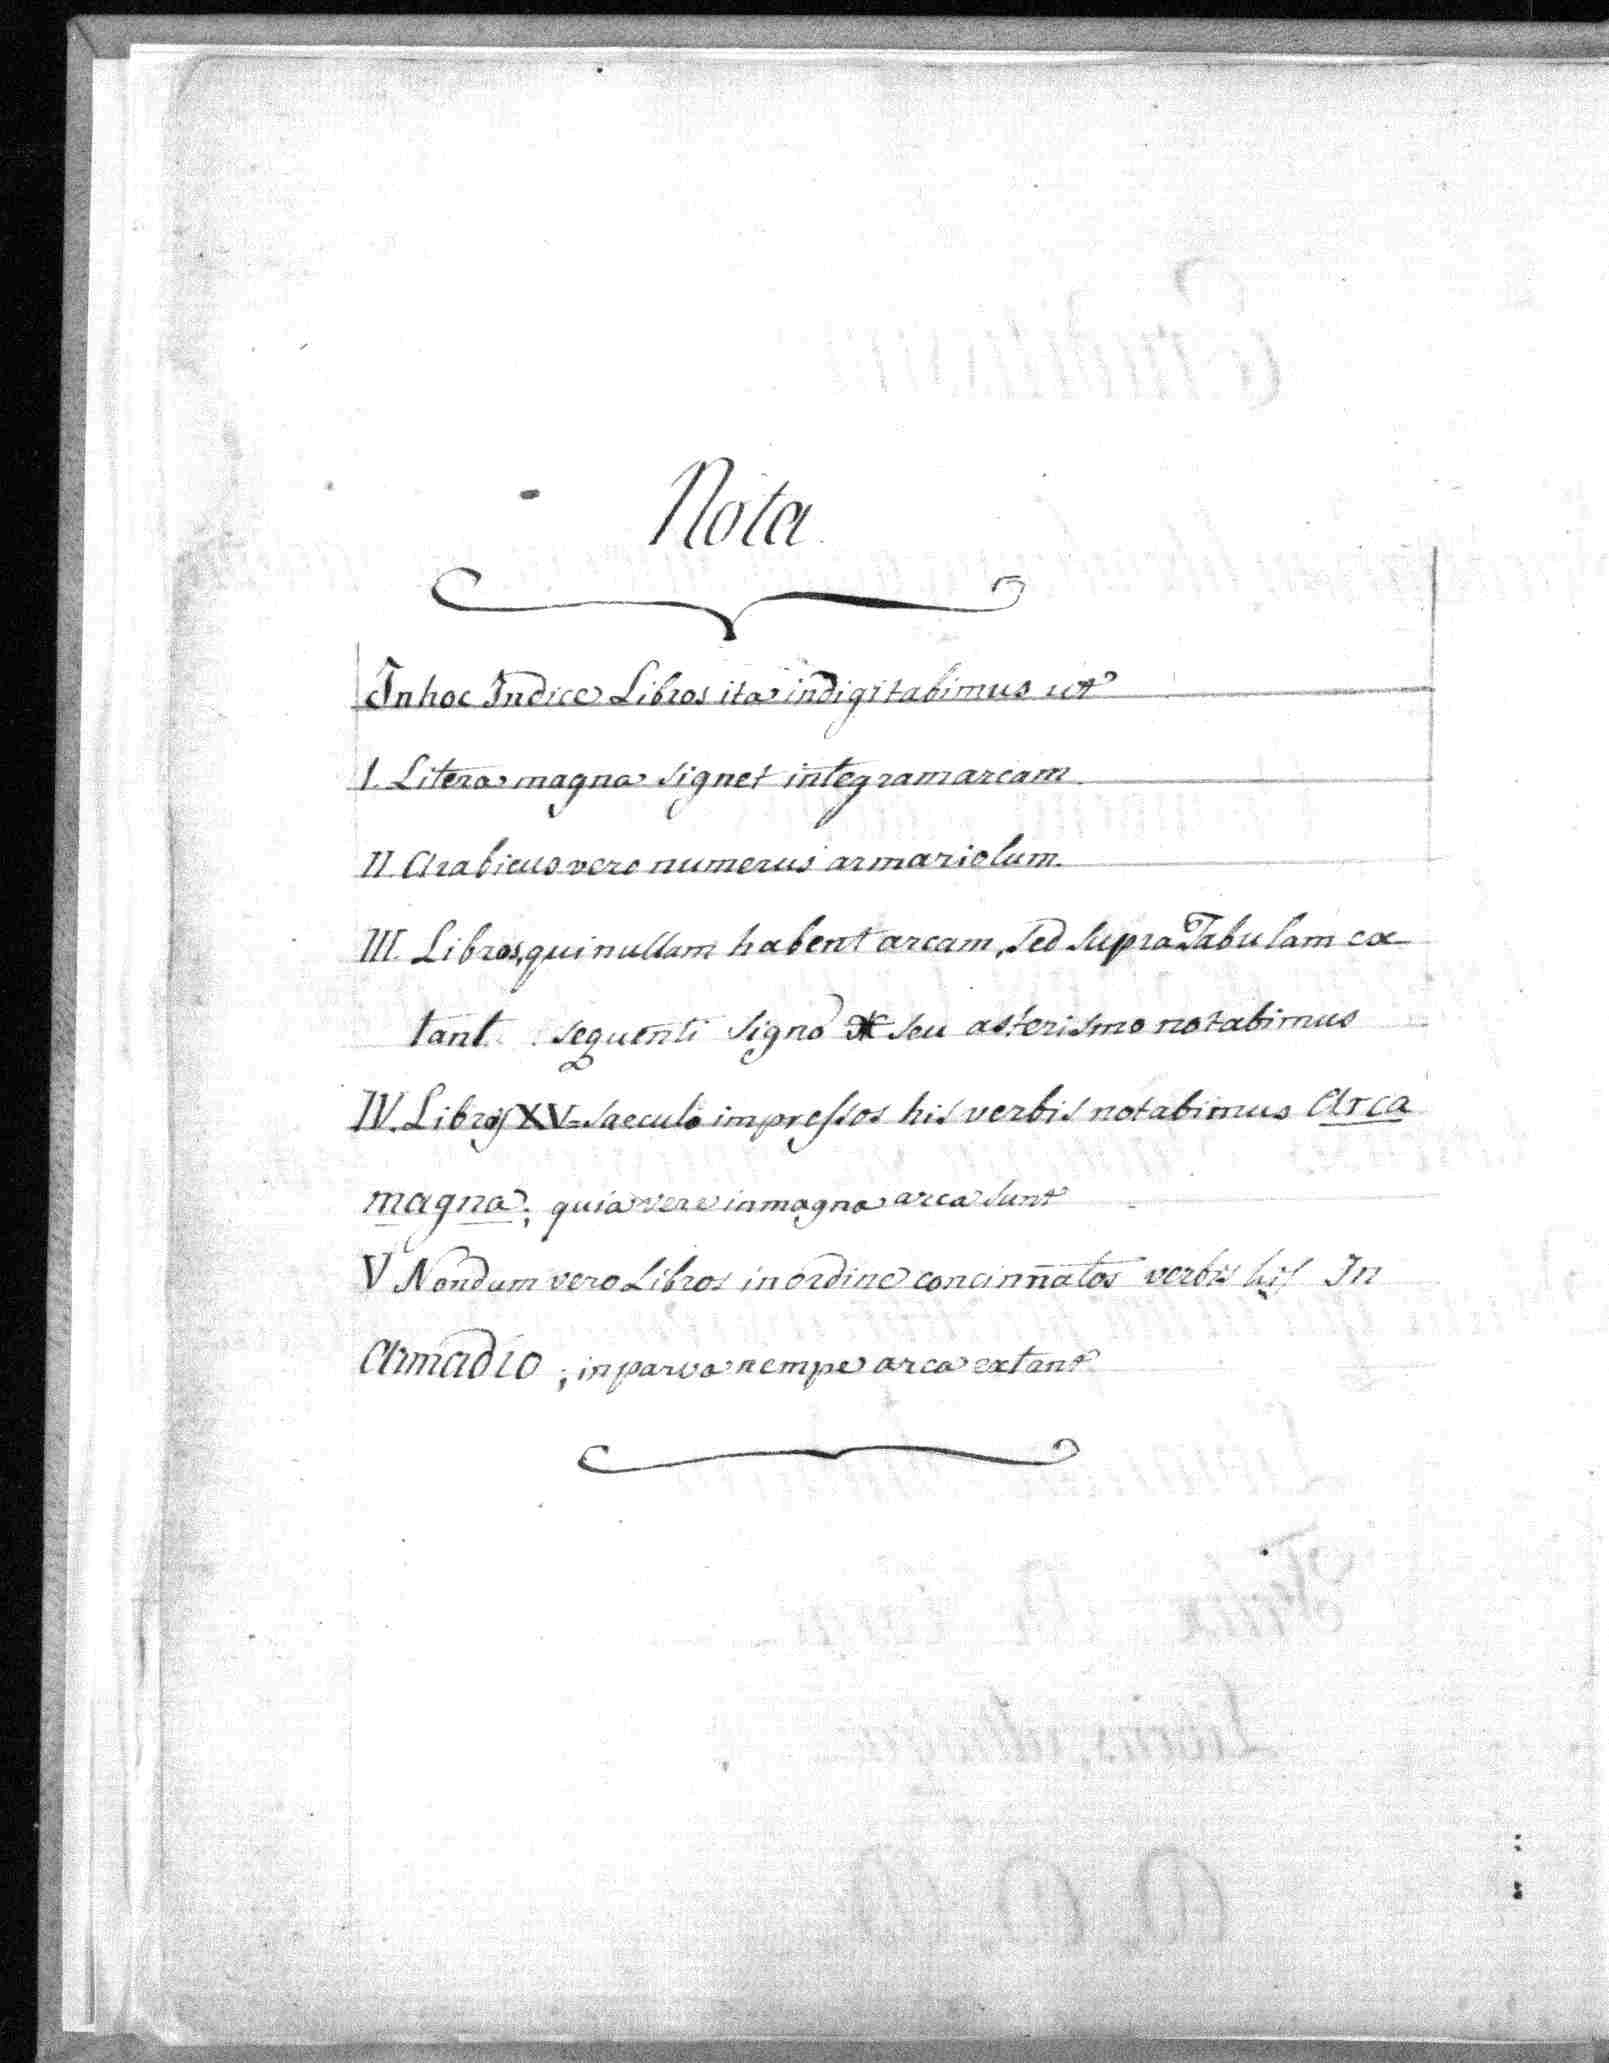 Nota
In hoc Indice Libros ita indigitabimus ut
I. Litera magna signet integram arcam
II. Arabicus vero numerus armariolum.
III. Libros, qui nullam habent arcam, sed supra Tabulam ex
tant sequenti signo * seu asterismo notabimus
IV. Libros XV= saeculo impressos his verbis notabimus Arca
magna; quia vere in magna arca sunt
V Nondum vero Libros in ordine concinnatos verbis his In
Armadio; in parva nempe arca extant